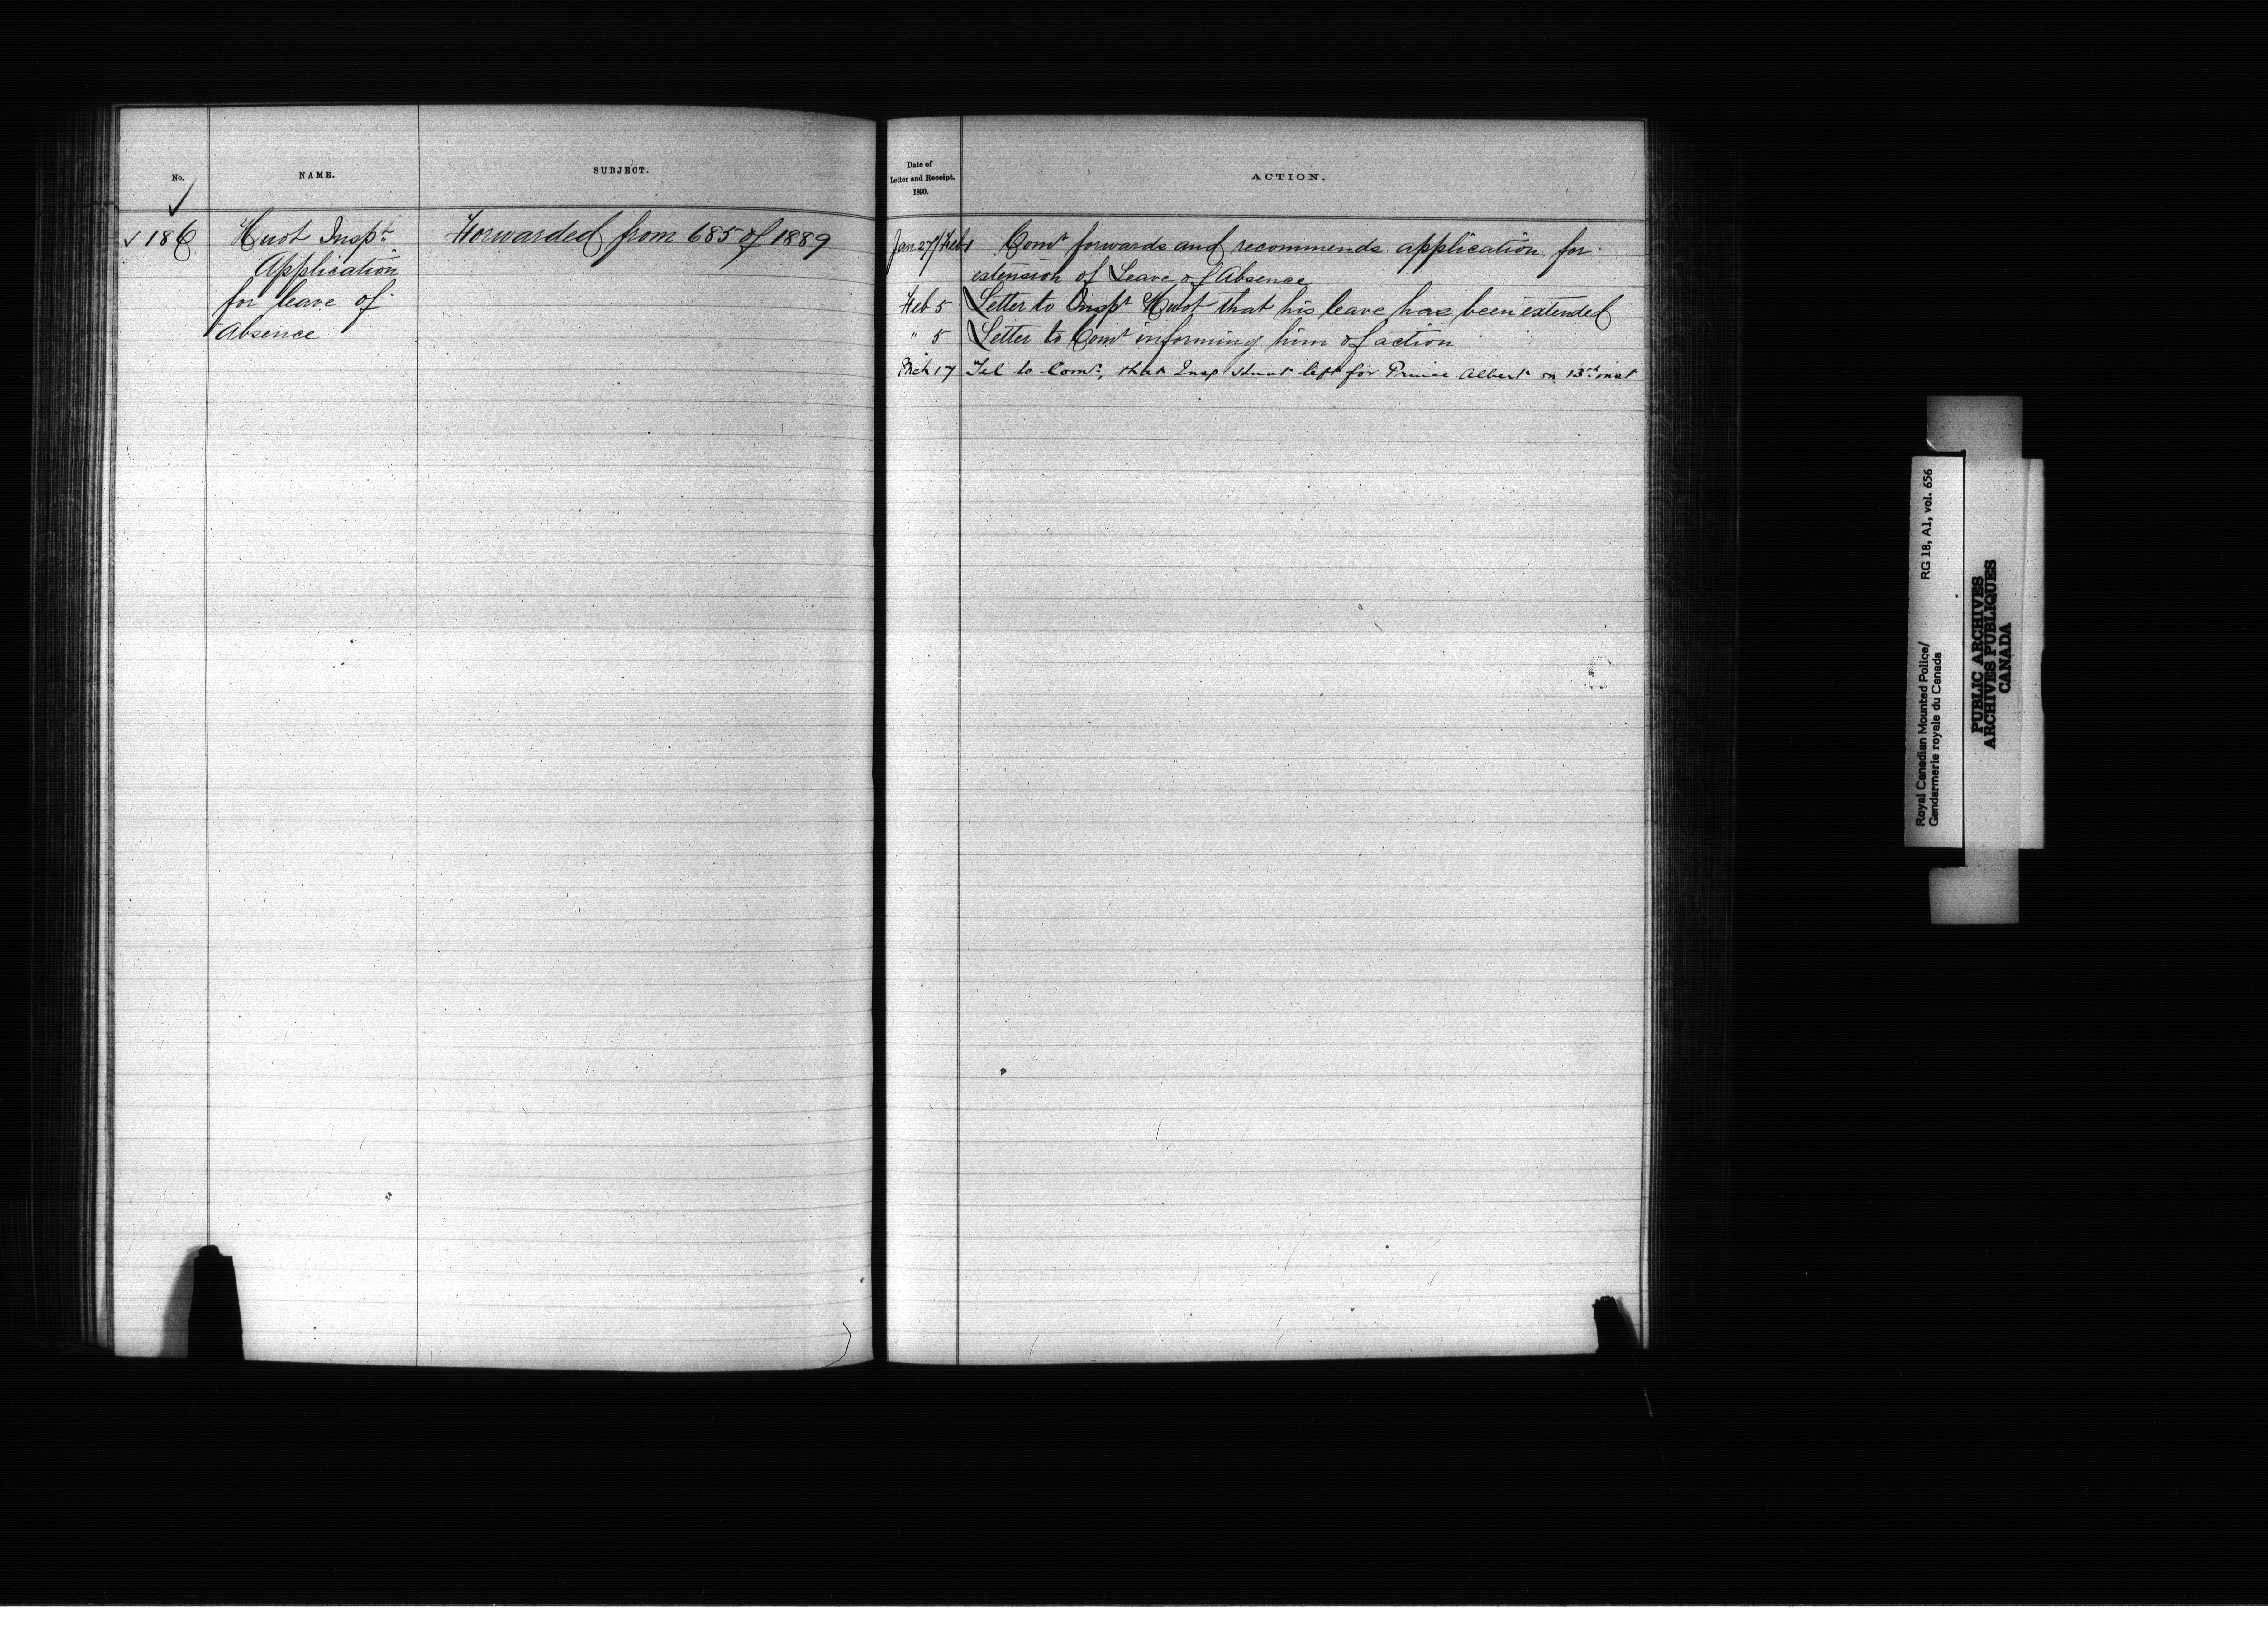 No.
NAME.
SUBJECT.
✓
✓ 186
Huot Inspt.
Application
for leave of
Absence
Forwarded from 685 of 1889
Date of
Letter and Receipt.
1890.
ACTION.
Jan 27/Feb 1 Comr forwards and recommends application for
extension of Leave of Absence
Feb 5 Letter to Inspt Huot that his leave has been extended
" 5 Letter to Comr informing him of action
Mch 17 Tel to Comr, that Insp Huot left for Prince Albert on 13th inst
Royal Canadian Mounted Police/ RG 18, A1, vol. 656
Gendarmerie royale du Canada
PUBLIC ARCHIVES
ARCHIVES PUBLIQUES
CANADA